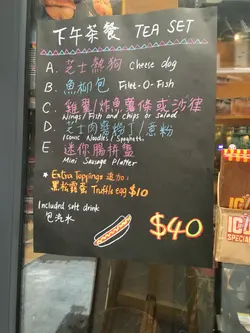 下午茶餐 TEA SET
A. 芝士熱狗 Cheese dog
B. 魚柳包 Filet-O-Fish
C. 雞翼/炸魚薯條或沙律
Wings/Fish and chips or Salad
D. 芝士肉醬粉丁/意粉
Elbow Noodles/Spaghetti.
E. 迷你腸拼盤
Mini Sausage Platter
★ Extra Toppings 追加:
黑松露蛋 Truffle egg $10
Included soft drink
包汽水
$40
SPECIAL